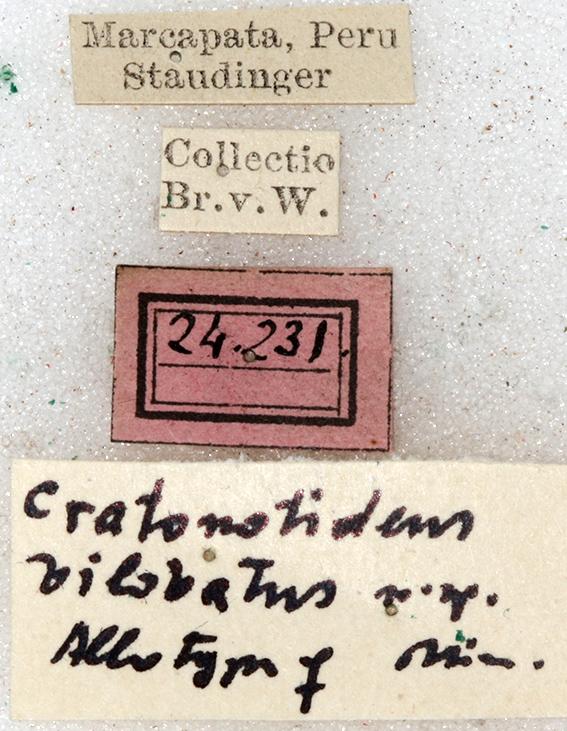 Marcapata, Peru
Staudinger
Collectio
Br.v.W.
24.231.
Cratonotidens
bilobatus n.sp.
Allotyp